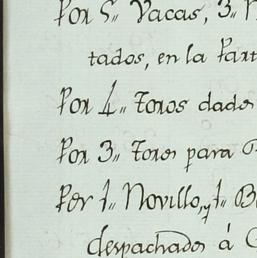 Por 5,, Vacas, 3,,
tados, en la Part
Por 4,, Toros dados
Por 3,, Toros para
Por 1,, Novillo, y 1,,
despachados á